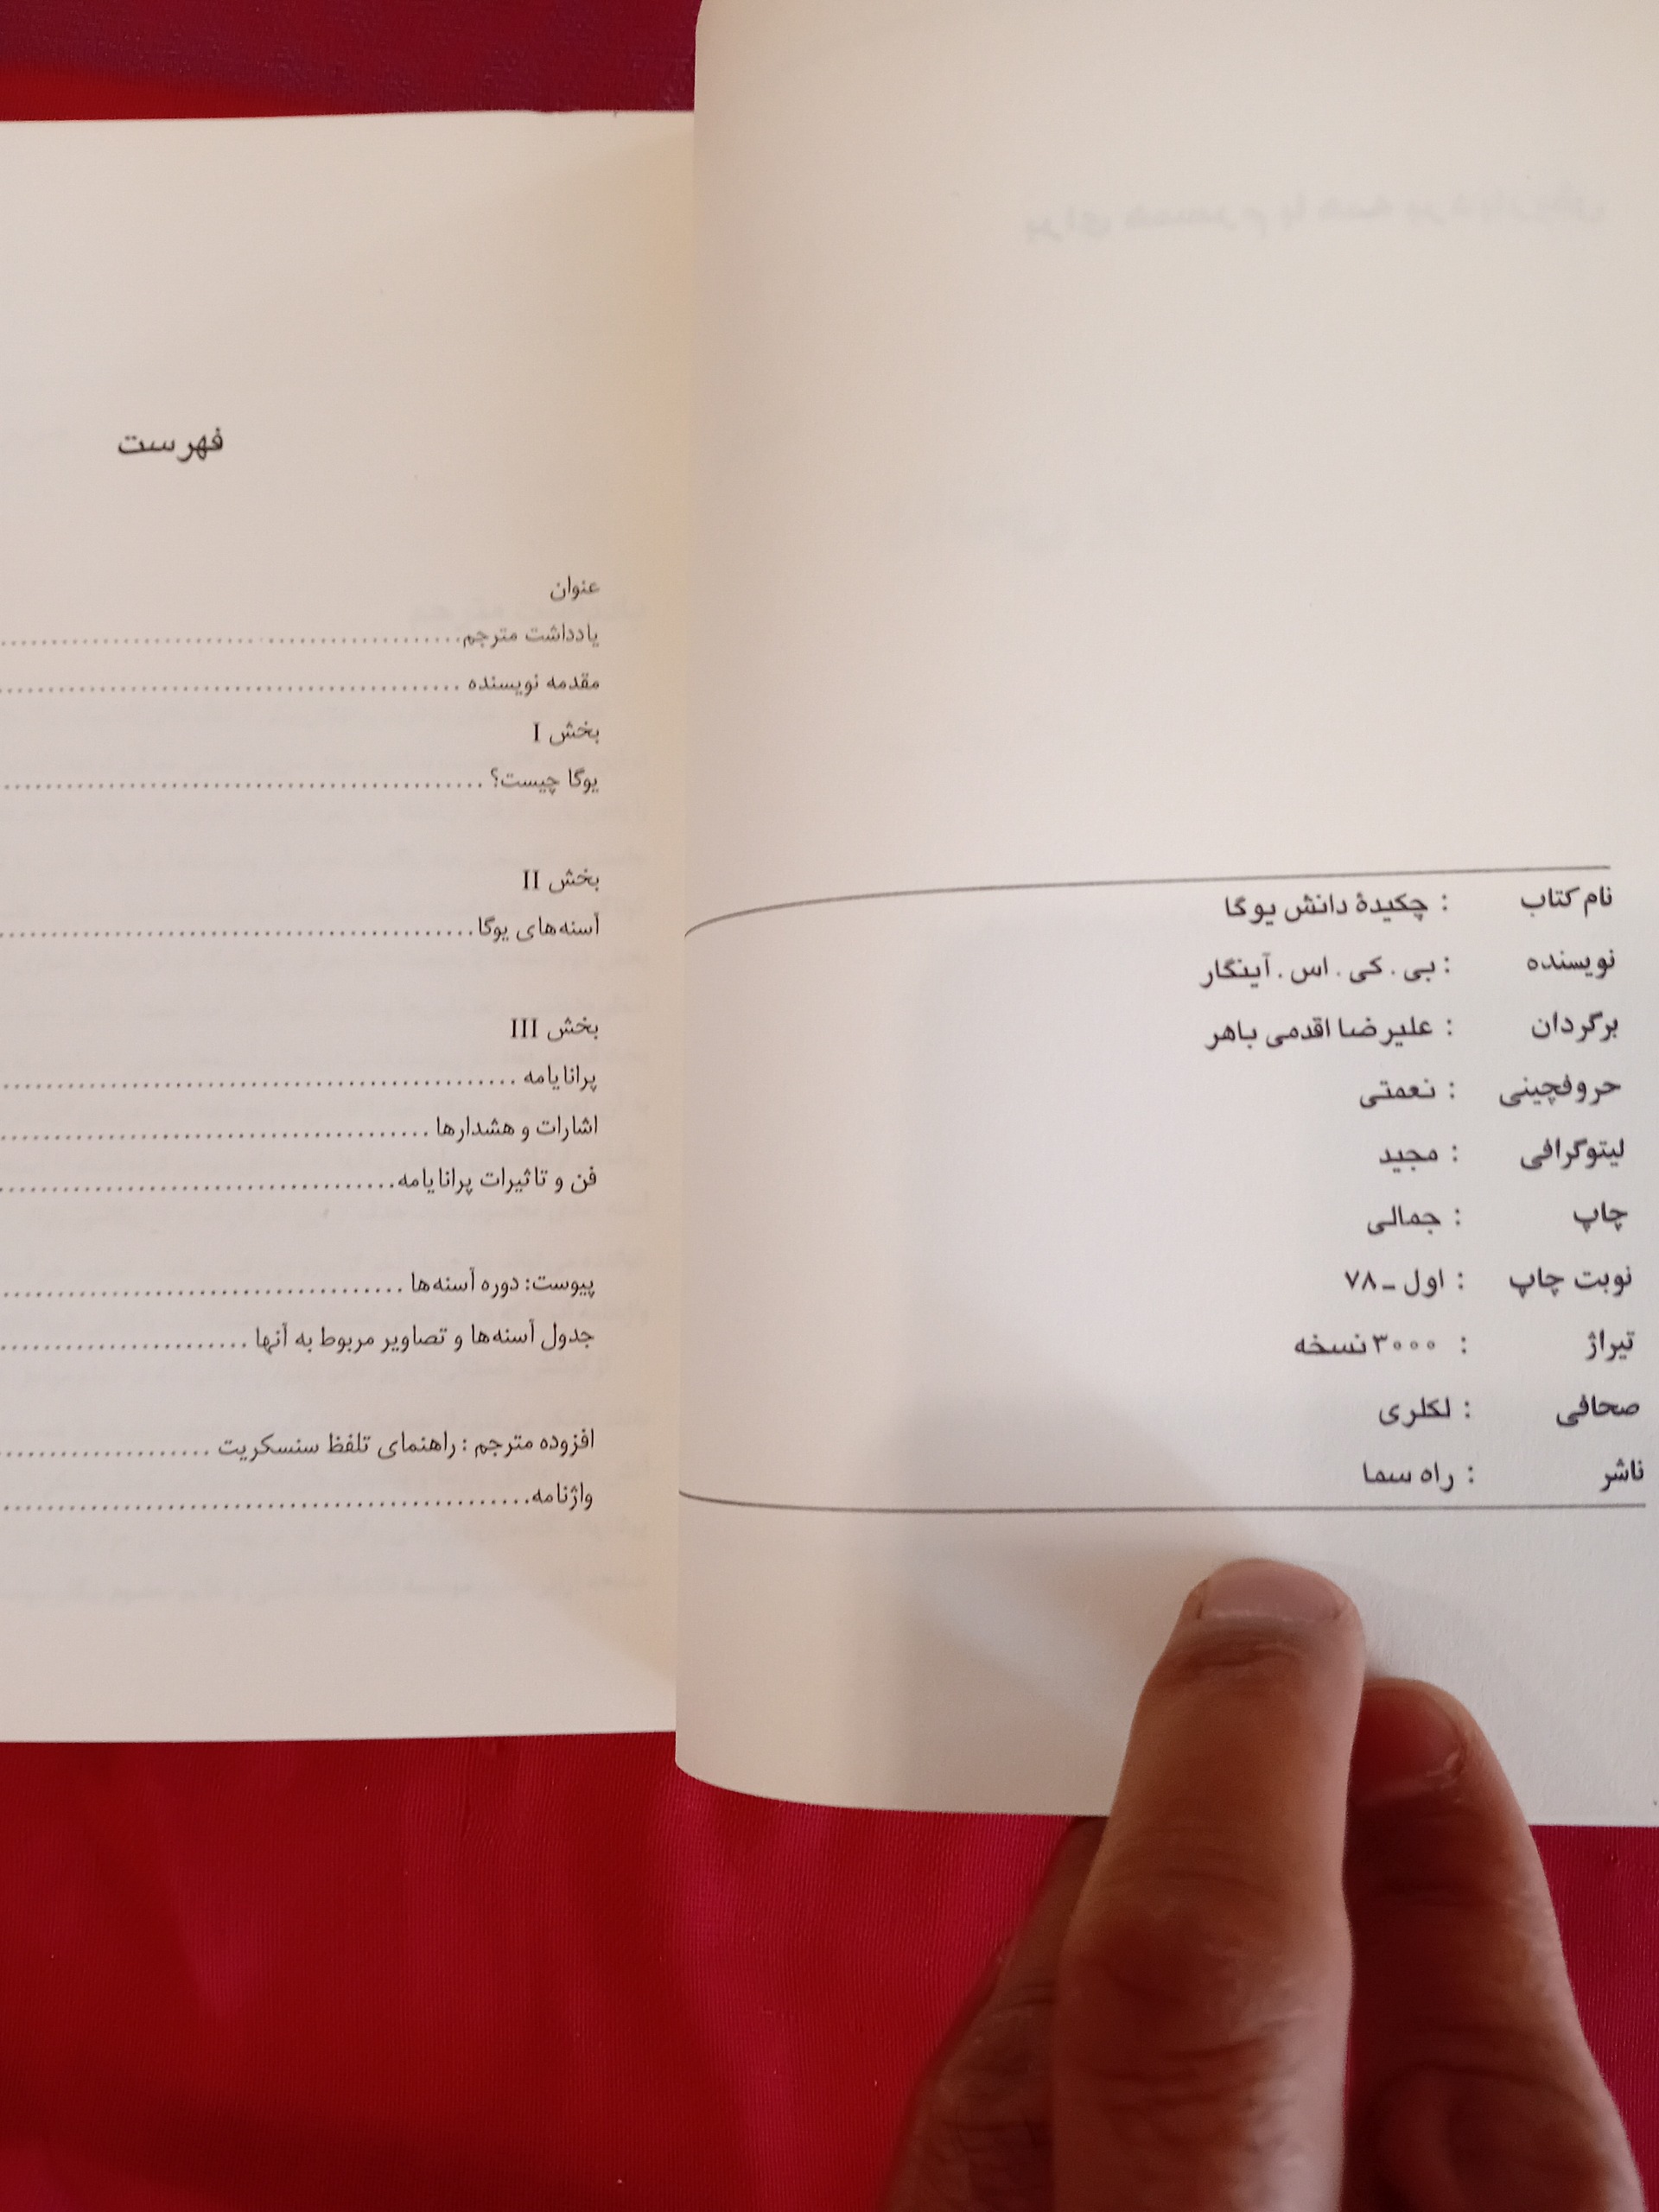 نام کتاب : چکیدهٔ دانش یوگا
نویسنده : بی . کی . اس . آینگار
برگردان : علیرضا اقدمی باهر
حروفچینی : نعمتی
لیتوگرافی : مجید
چاپ : جمالی
نوبت چاپ : اول ـ ۷۸
تیراژ : ۳۰۰۰ نسخه
صحافی : لکلری
ناشر : راه سما
فهرست
عنوان
یادداشت مترجم
مقدمه نویسنده
بخش I
یوگا چیست؟
بخش II
آسنه‌های یوگا
بخش III
پرانایامه
اشارات و هشدارها
فن و تاثیرات پرانایامه
پیوست: دوره آسنه‌ها
جدول آسنه‌ها و تصاویر مربوط به آنها
افزوده مترجم : راهنمای تلفظ سنسکریت
واژنامه